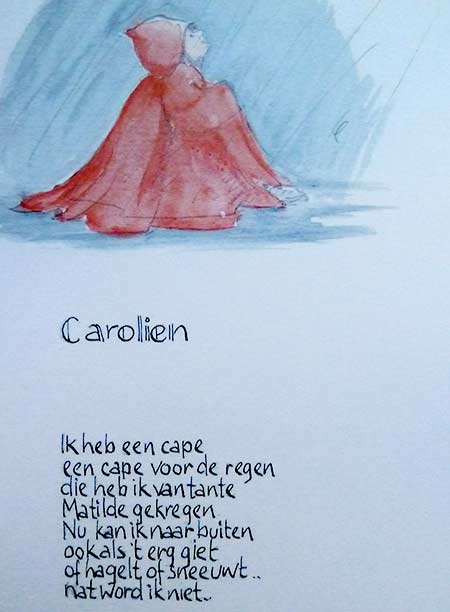 Carolien
Ik heb een cape
een cape voor de regen
die heb ik van tante
Matilde gekregen
Nu kan ik naar buiten
ook als 't erg giet
of hagelt of sneeuwt..
nat word ik niet..